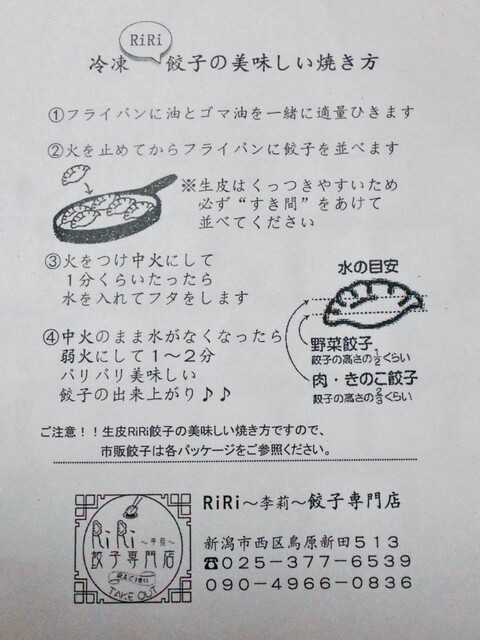 RiRi
冷凍 餃子の美味しい焼き方
①フライパンに油とゴマ油を一緒に適量ひきます
②火を止めてからフライパンに餃子を並べます
※生皮はくっつきやすいため
必ず“すき間”をあけて
並べてください
③火をつけ中火にして
1分くらいたったら
水を入れてフタをします
水の目安
野菜餃子
餃子の高さの1/2くらい
肉・きのこ餃子
餃子の高さの2/3くらい
④中火のまま水がなくなったら
弱火にして1~2分
パリパリ美味しい
餃子の出来上がり♪♪
ご注意!!生皮RiRi餃子の美味しい焼き方ですので、
市販餃子は各パッケージをご参照ください。
RiRi
~李莉~
餃子専門店
TAKE OUT
RiRi~李莉~餃子専門店
新潟市西区鳥原新田513
☎025-377-6539
090-4966-0836